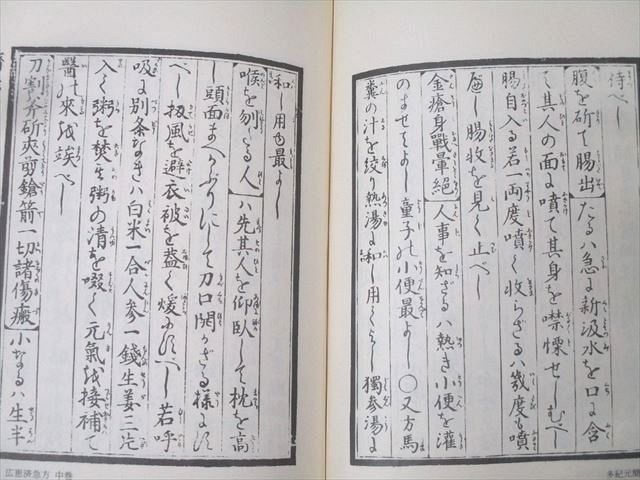 待べし
腹を斫て腸出たるハ急に新汲水を口に含
て其人の面に噴て其身を噤慄せしむべし
腸自入る若一両度噴く收らざるハ幾度も噴
べし腸收を見く止べし
金瘡身戰暈絕人事を知ざるハ熱き小便を灌
のませてよし童子の小便最よし〇又方馬
糞の汁を絞り熱湯に和し用てよし獨参湯に
和し用ゆ最よし
喉を刎たる人ハ先其人を仰臥して枕を高
し頭面まへかぶりにして刀口開かざる様にす
べし扨風を避衣被を蓋く煖にすべし若呼
吸に別条なきハ白米一合人参一錢生姜三片
入く粥を焚生粥の清を啜く元氣を接補て
醫の來を竢べし
刀割斧斫夾剪鎗箭一切諸傷瘢小なるハ生半
広恵済急方 中巻
多紀元簡